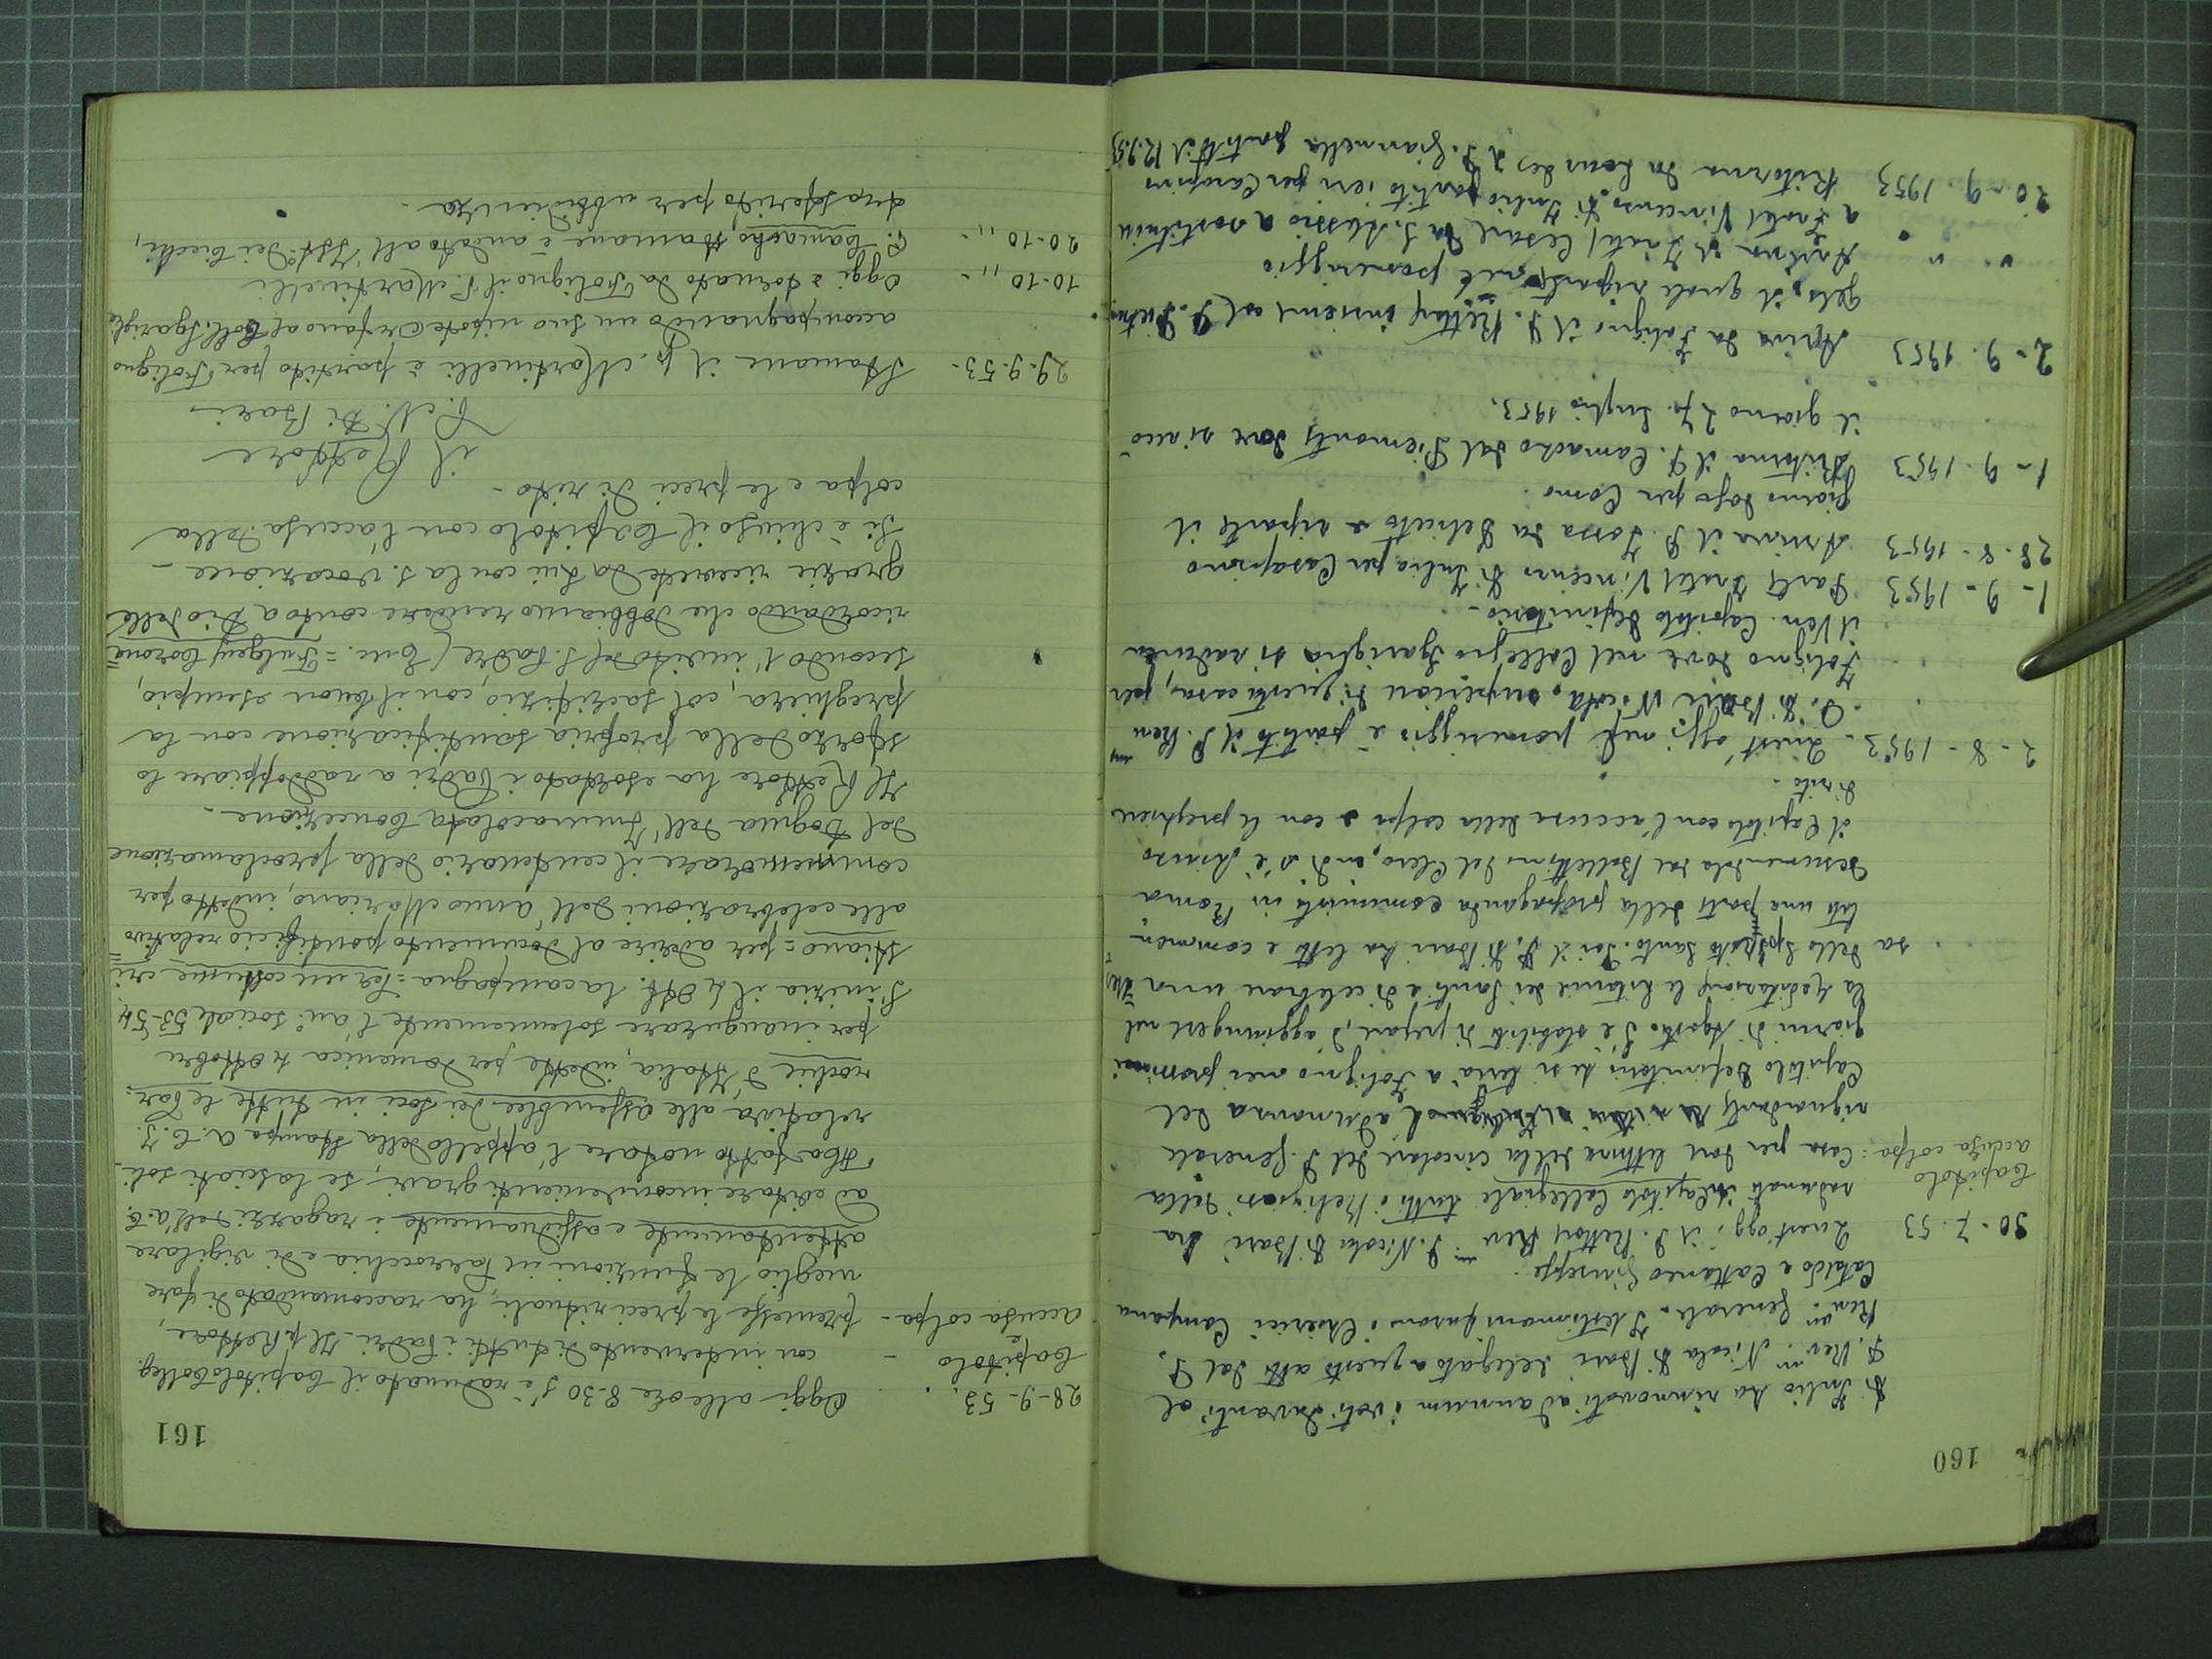 160
di Iulio ha rinnovati ad annum i voti davanti al
P. Rev.mo Nicola di Bari delegato a questo atto dal P.
Rev.mo Generale. Testimoni furono i Chierici Campana
Cataldo e Cattaneo Giuseppe.
30-7-53 Quest'oggi, il P. Rettore Rev.mo P. Nicola di Bari ha
Capitolo radunati Capitolo Collegiale tutti i Religiosi della
accusa colpa: Casa per dare lettura della circolare del P. Generale
riguardante adunanza del
Capitolo Definitorio che si terrà a Foligno nei prossimi
giorni di Agosto. S'è stabilito di pregare, d'aggiungere nel
la Meditazione le Litanie dei Santi e di celebrare una Mes
sa dello Spirito Santo. Poi il P. di Bari ha letto e commen
tato una parte della propaganda comunista in Roma
desumendola dal Bollettino del Clero, indi s'è chiuso
il Capitolo con l'accusa della colpa e con le preghiere
di rito.
2-8-1953 - Quest'oggi nel pomeriggio è partito il P. Rev.mo
P. di Bari Nicola, superiore di questa casa, per
Foligno dove nel Collegio Sgariglia si radunerà
il Ven. Capitolo Definitorio.
1-9-1953 Parte Fratel Vincenzo di Iulio per Casaprino
28-8-1953 Arriva il P. Fossa da Deliceto e riparte il
giorno dopo per Como.
1-9-1953 Ritorna il P. Camacho dal Piemonte dove si recò
il giorno 27. luglio 1953.
2-9-1953 Arriva da Foligno il P. Rettore insieme col P. Pietran
gelo, il quale riparte nel pomeriggio
" " " Arriva il Fratel Cesare da S. Alessio a sostituire
a Fratel Vincenzo di Iulio partito ieri per
20-9-1953 Ritorna da il P. Giannella partito il 12.9.53
161
28-9-53. Oggi alle ore 8-30 s'è radunato il Capitolo Colleg.
Capitolo - con intervento di tutti i Padri. Il p. Rettore,
e accusa colpa - premesse le preci rituali, ha raccomandato di fare
meglio le funzioni in Parrocchia e di vigilare
attentamente e assiduamente i ragazzi dell'A.C.
ad evitare inconvenienti gravi, se lasciati soli.
Ha fatto notare l'appello della Stampa A.C.I.
relativa alle assemblee dei soci in tutte le Par:
rochie d'Italia, indette per domenica 4 ottobre
per inaugurare solennemente l'an: sociale 53-54.
S'inizia il 4 Ott. la campagna = Per un costume cri
stiano = per aderire al documento pontificio relativo
alle celebrazioni dell'anno Mariano, indetto per
commemorare il centenario della proclamazione
del Dogma dell'Immacolata Concezione -
Il Rettore ha esortato i Padri a raddoppiare lo
sforzo della propria santificazione con la
preghiera, col sacrifizio, con il buon esempio,
secondo l'invito del S. Padre (Enc. = Fulgens Corona =
ricordando che dobbiamo rendere conto a Dio delle
grazie ricevute da Lui con la s. vocazione -
Si è chiuso il Capitolo con l'accusa della
colpa e le preci di rito -
il Rettore
P. N. Di Bari -
29-9-53 - Stamane il p. Martinelli è partito per Foligno
accompagnando un suo nipote orfano al Coll. Sgariglia
10-10 " - Oggi è tornato da Foligno il P. Martinelli
20-10 " - P. Camacho, stamane è andato all'Ist. dei Ciechi,
trasferito per ubbidienza -